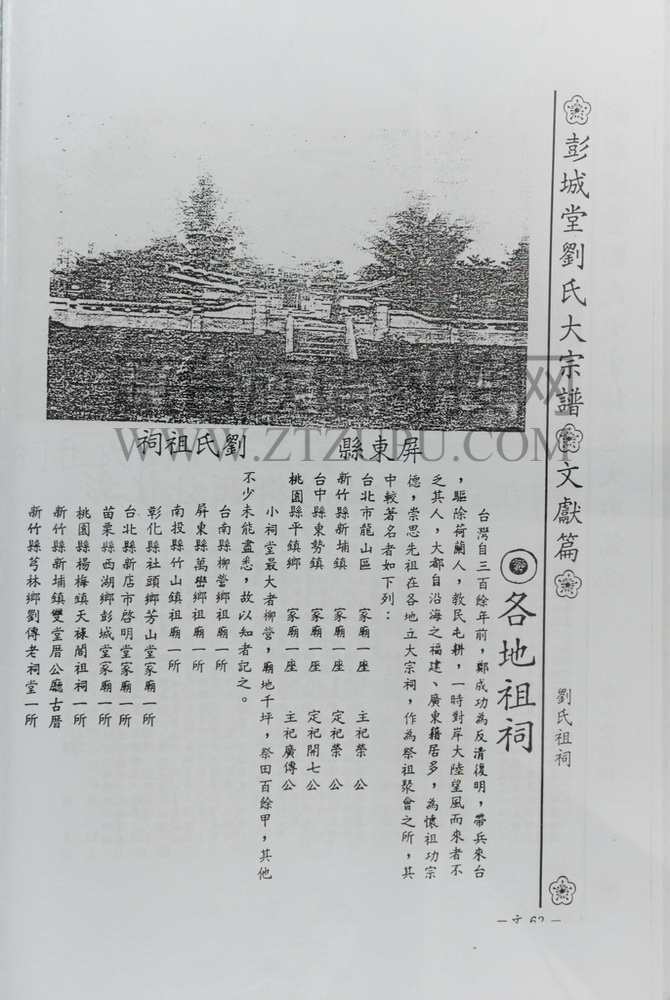 彭城堂劉氏大宗譜 文獻篇 劉氏祖祠
各地祖祠
台灣自三百餘年前，鄭成功為反清復明，帶兵來台
，驅除荷蘭人，教民屯耕，一時對岸大陸望風而來者不
乏其人，大都自沿海之福建、廣東籍居多，為懷祖功宗
德，崇思先祖在各地立大宗祠，作為祭祖聚會之所，其
中較著名者如下列：
台北市龍山區 家廟一座 主祀榮公
新竹縣新埔鎮 家廟一座 定祀榮公
台中縣東勢鎮 家廟一座 定祀開七公
桃園縣平鎮鄉 家廟一座 主祀廣傳公
小祠堂最大者柳營，廟地千坪，祭田百餘甲，其他
不少未能盡悉，故以知者記之。
台南縣柳營鄉祖廟一所
屏東縣萬巒鄉祖廟一所
南投縣竹山鎮祖廟一所
彰化縣社頭鄉芳山堂家廟一所
台北縣新店市啓明堂家廟一所
苗栗縣西湖鄉彭城堂家廟一所
桃園縣楊梅鎮天祿閣祖祠一所
新竹縣新埔鎮雙堂厝公廳古厝
新竹縣芎林鄉劉傳老祠堂一所
屏東縣 劉氏祖祠
WWW.ZTZUPU.COM